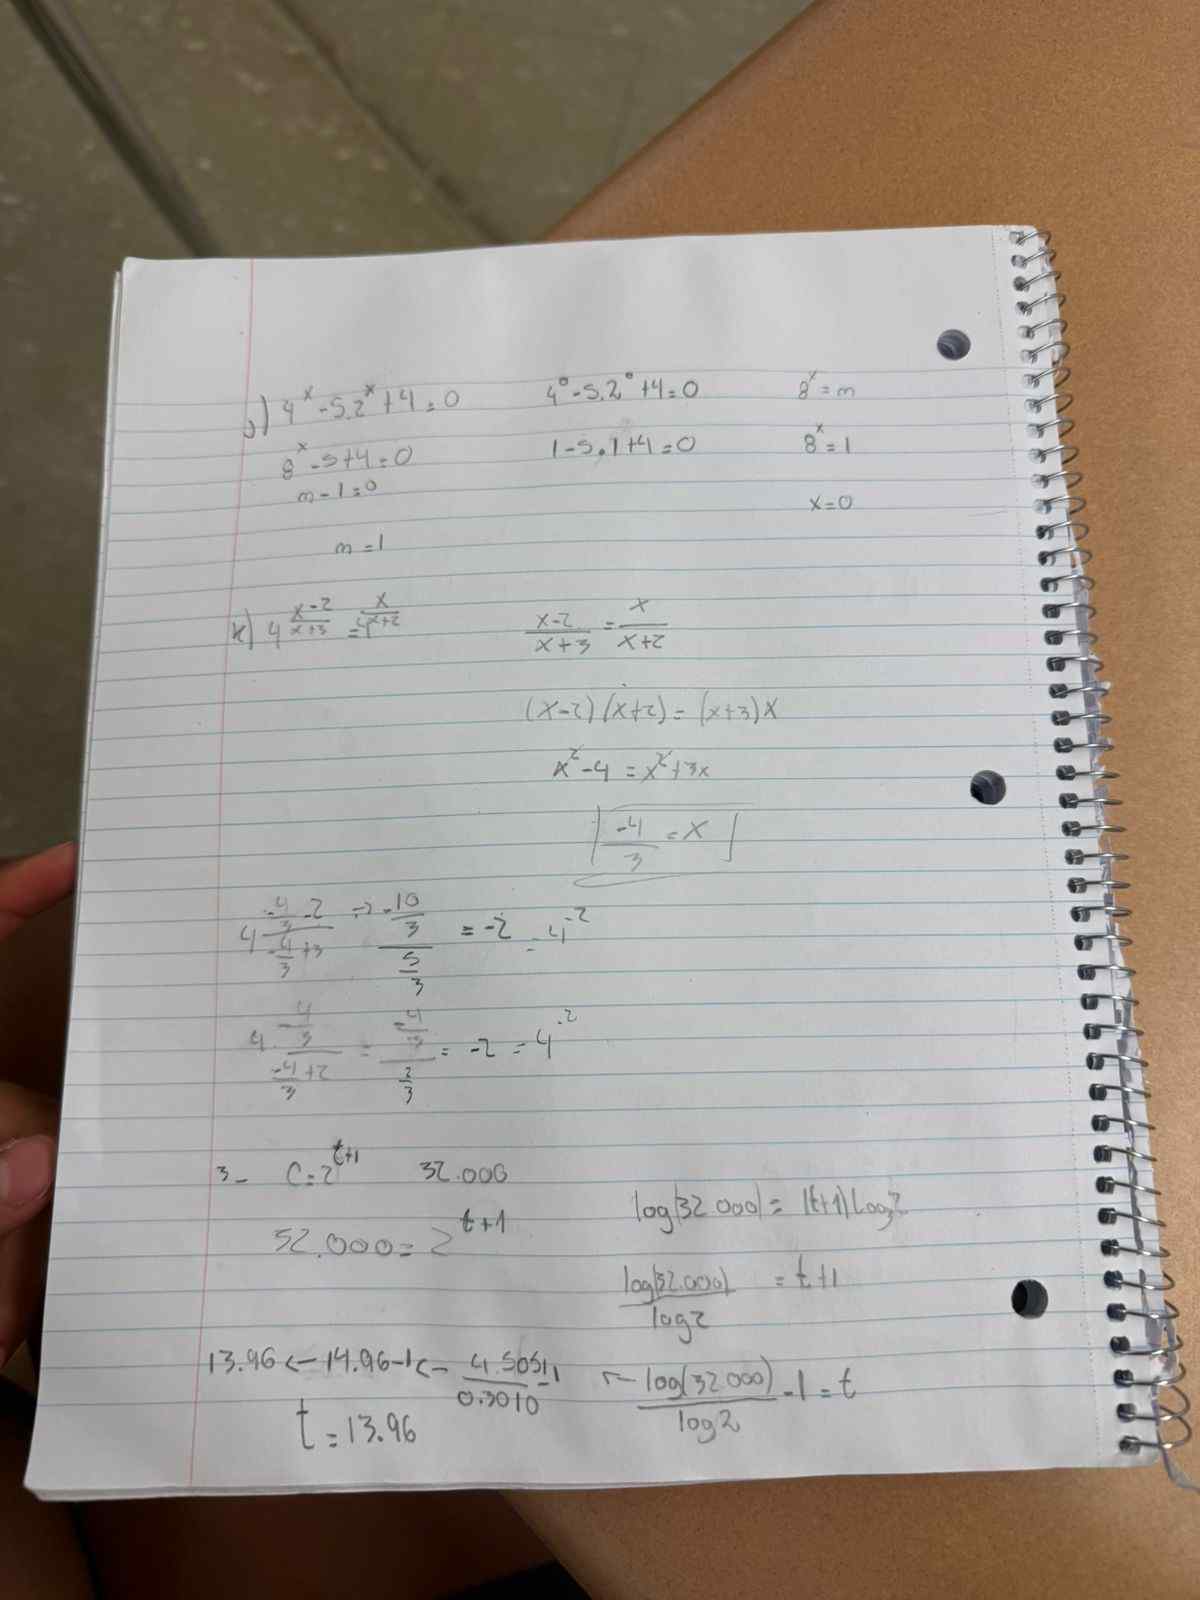 4^x - 5.2^x + 4 = 0    4^0 - 5.2^0 + 4 = 0    8^x = m
8^x - 5 + 4 = 0    1 - 5.1 + 4 = 0    8^x = 1
m - 1 = 0
x = 0
m = 1
k) 4^((x-2)/(x+3)) = 4^(x/(x+2))    (x-2)/(x+3) = x/(x+2)
(x-2)(x+2) = (x+3)x
x^2 - 4 = x^2 + 3x
-4/3 = x
4^((-4/3 - 2)/(-4/3 + 3)) → (-10/3)/(5/3) = -2 = 4^-2
4^((-4/3)/(-4/3 + 2)) = (-4/3)/(2/3) = -2 = 4^-2
3- C = 2^(t+1)    32.000
32.000 = 2^(t+1)
log(32.000) = (t+1) log2
log(32.000)/log2 = t+1
13.96 ← 14.96 - 1 ← 4.5051/0.3010 - 1 ← log(32.000)/log2 - 1 = t
t = 13.96